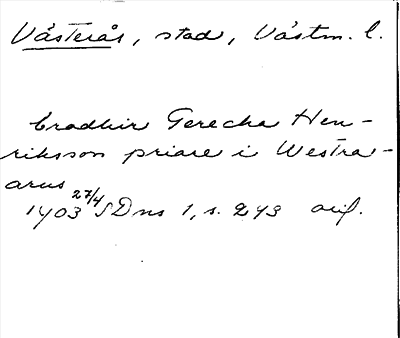 Västerås, stad, Västm. l.
brodhir Gerecha Hen-
riksson priare i Westra-
arus
1403 27/4 SDns 1, s. 243 avs.